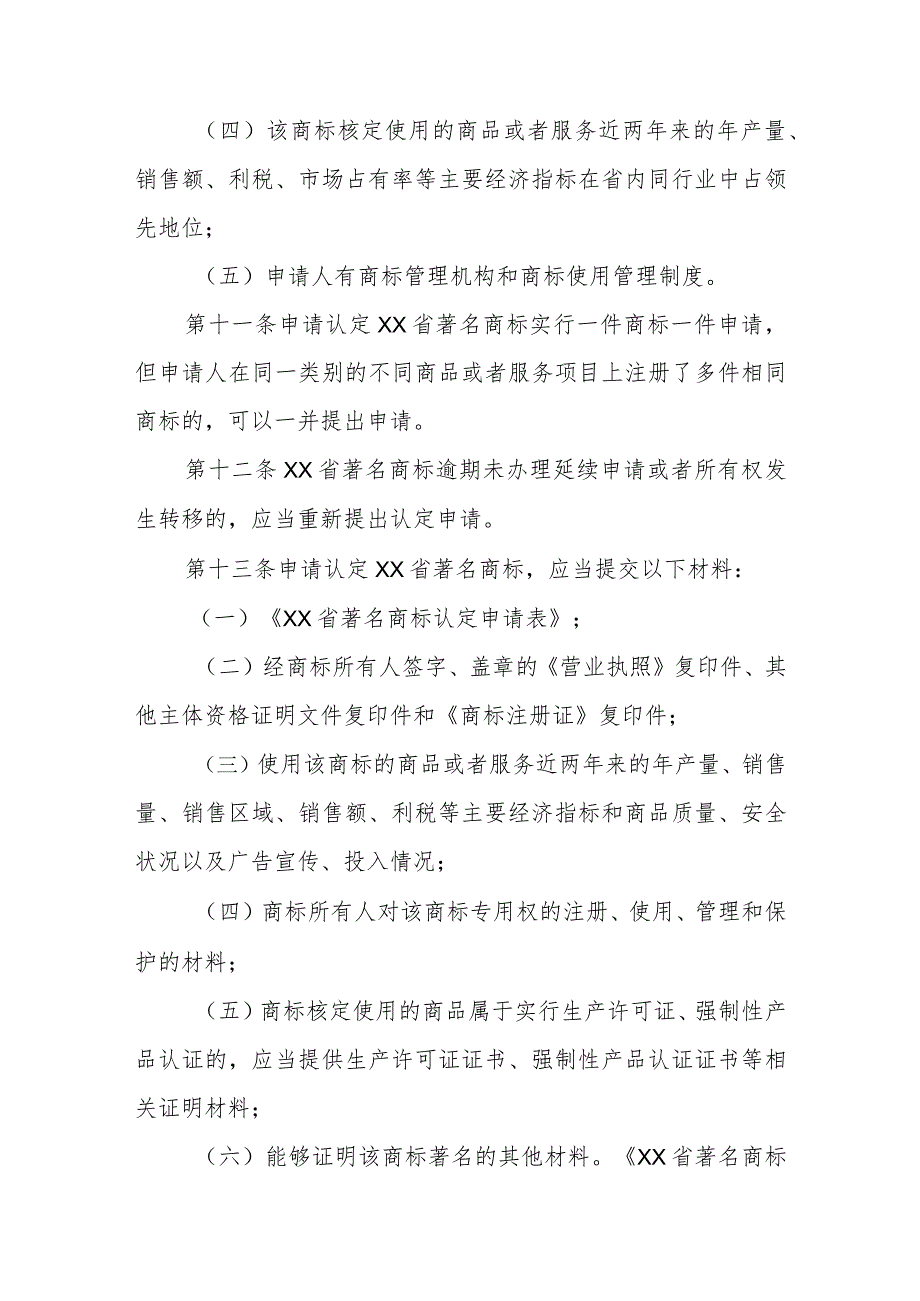 （四）该商标核定使用的商品或者服务近两年来的年产量、
销售额、利税、市场占有率等主要经济指标在省内同行业中占领
先地位；
（五）申请人有商标管理机构和商标使用管理制度。
第十一条申请认定 XX 省著名商标实行一件商标一件申请，
但申请人在同一类别的不同商品或者服务项目上注册了多件相同
商标的，可以一并提出申请。
第十二条 XX 省著名商标逾期未办理延续申请或者所有权发
生转移的，应当重新提出认定申请。
第十三条申请认定 XX 省著名商标，应当提交以下材料：
（一）《XX 省著名商标认定申请表》；
（二）经商标所有人签字、盖章的《营业执照》复印件、其
他主体资格证明文件复印件和《商标注册证》复印件；
（三）使用该商标的商品或者服务近两年来的年产量、销售
量、销售区域、销售额、利税等主要经济指标和商品质量、安全
状况以及广告宣传、投入情况；
（四）商标所有人对该商标专用权的注册、使用、管理和保
护的材料；
（五）商标核定使用的商品属于实行生产许可证、强制性产
品认证的，应当提供生产许可证证书、强制性产品认证证书等相
关证明材料；
（六）能够证明该商标著名的其他材料。《XX 省著名商标